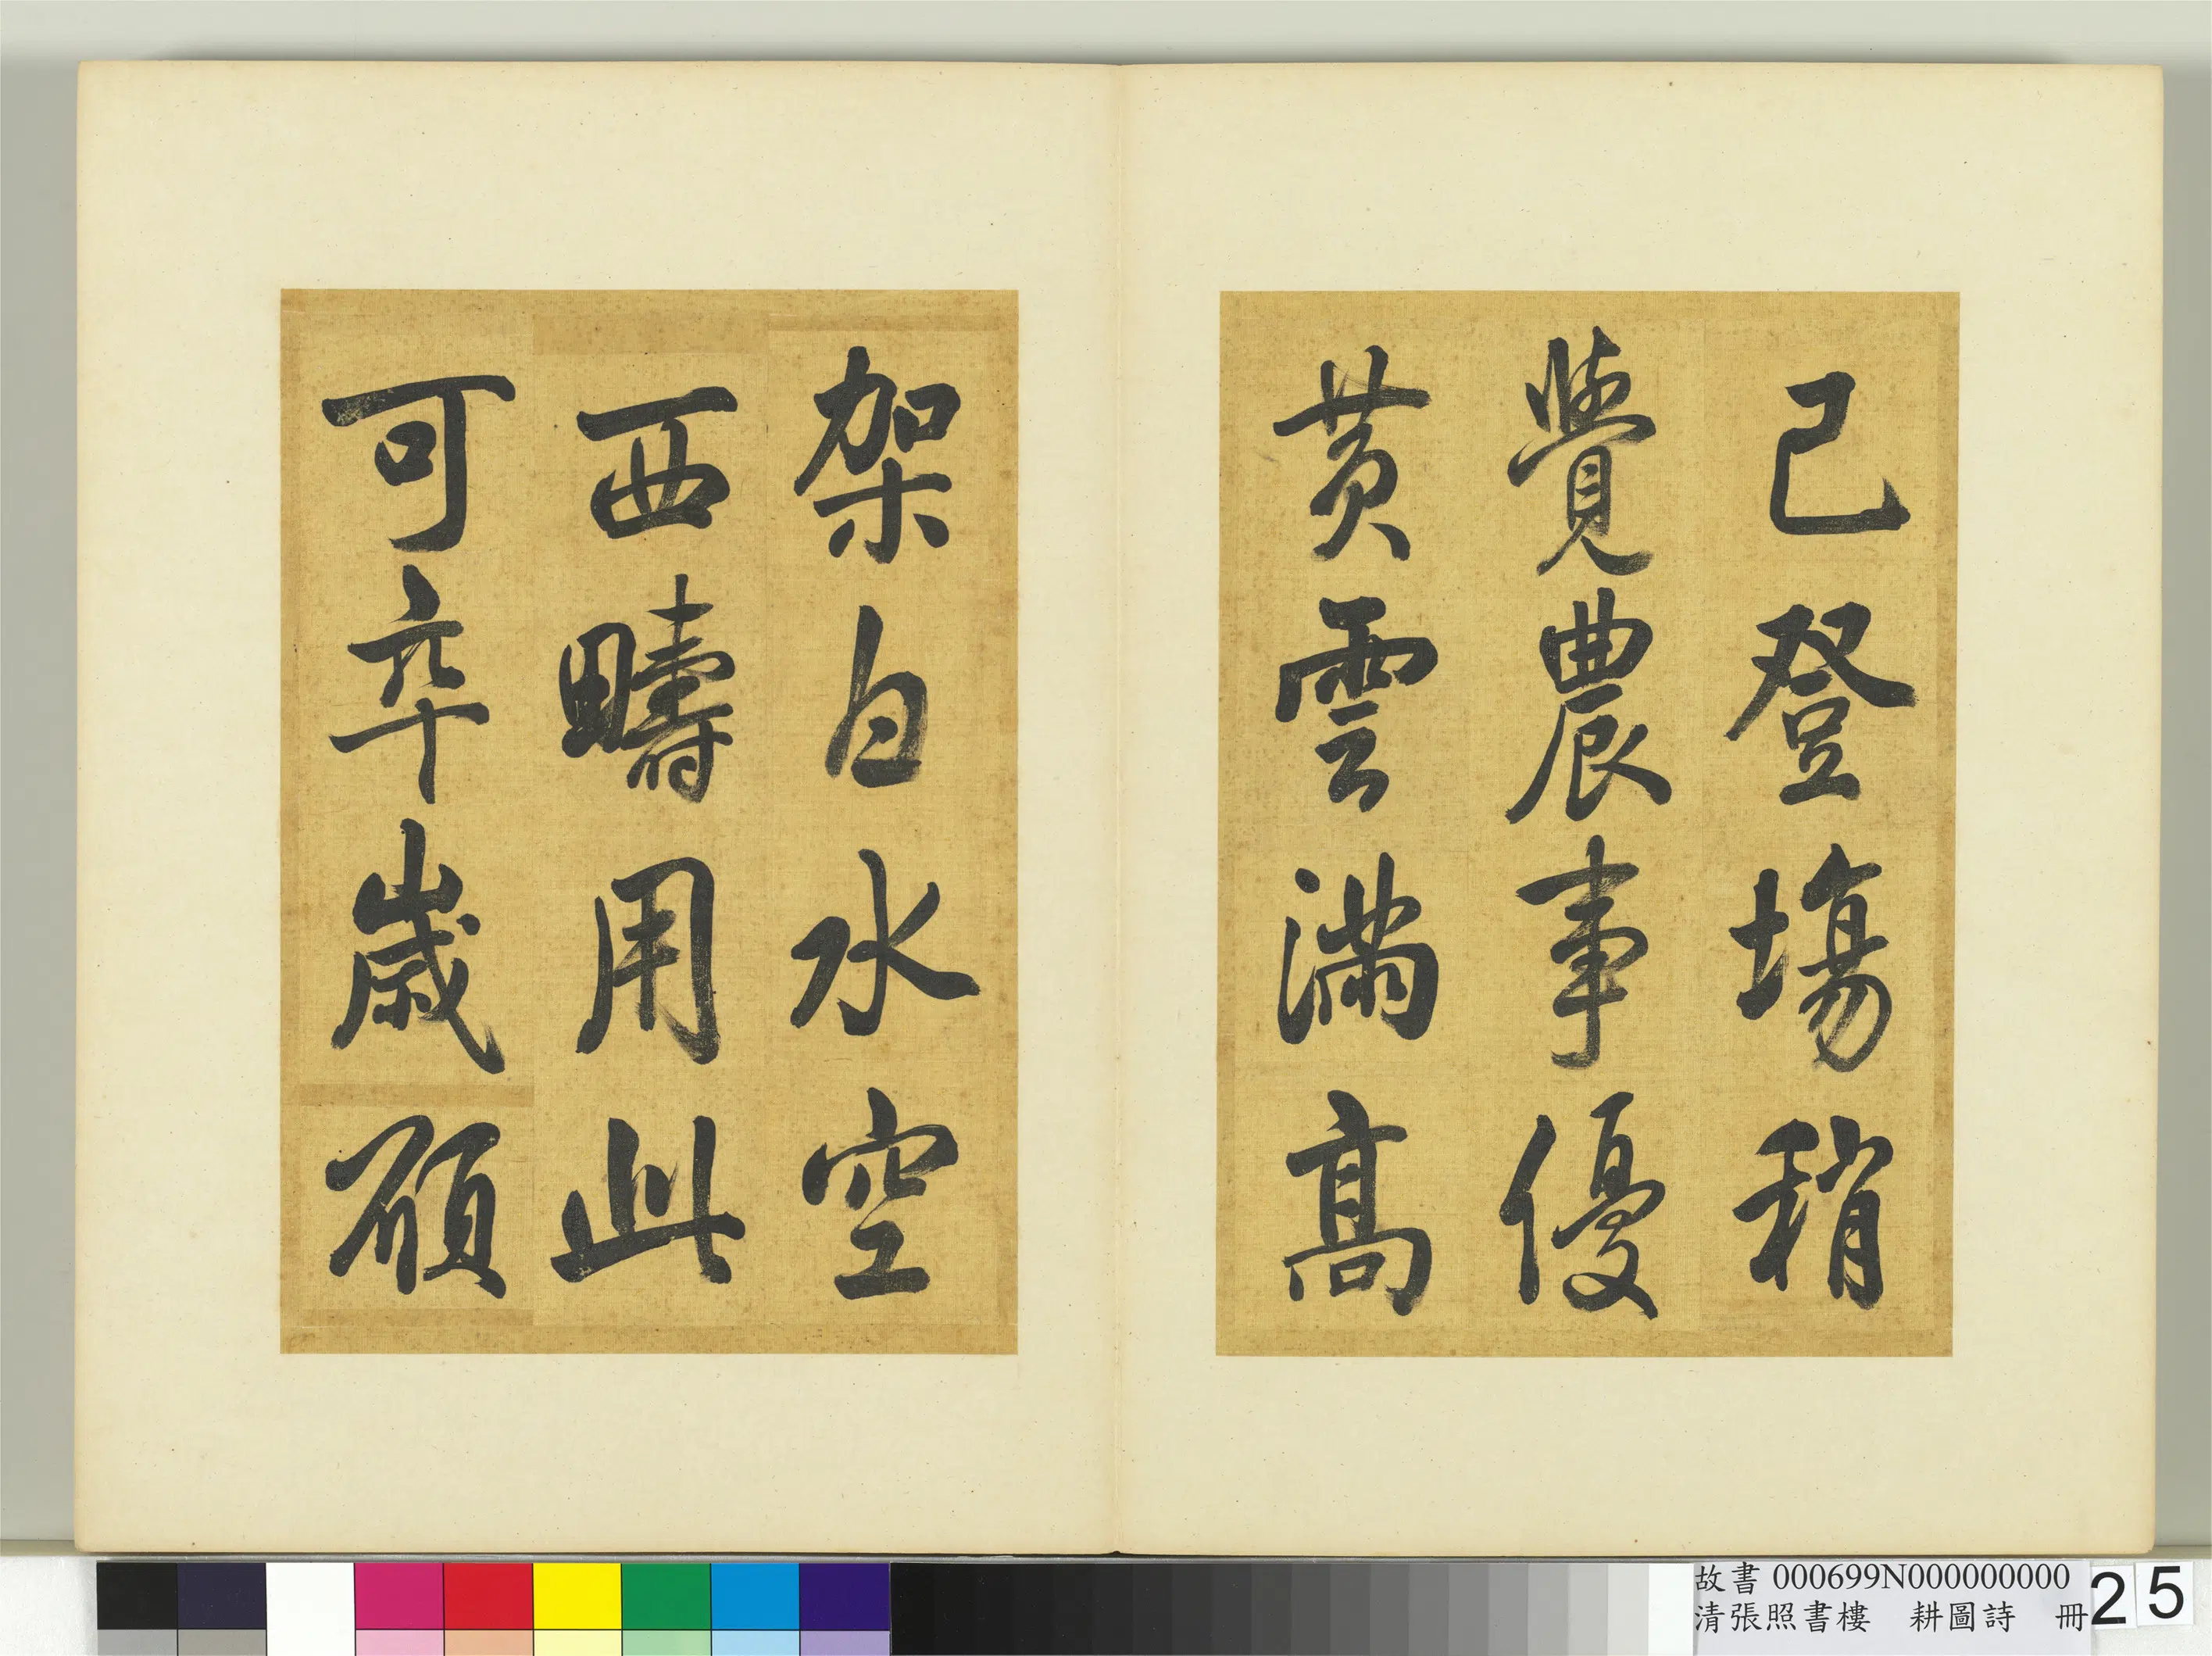 已登場稍
覺農事優
黄雲滿高
架白水空
西疇用此
可卒歲願
故書 000699N000000000
清張照書樓　耕圖詩　冊
25